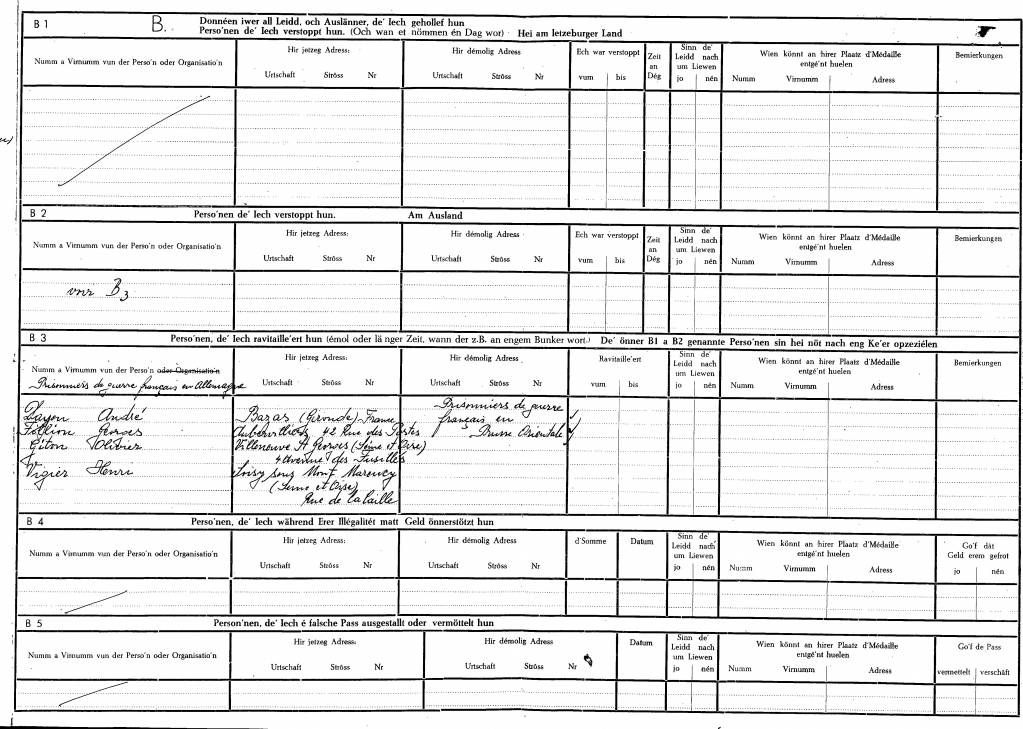 B 1
B.
Donnéen iwer all Leidd, och Auslänner, de' Iech gehollef hun
Perso'nen de' Iech verstoppt hun. (Och wan et nömmen én Dag wor) Hei am letzeburger Land
Numm a Virnumm vun der Perso'n oder Organisatio'n
Hir jetzeg Adress:
Urtschaft Ströss Nr
Hir démolig Adress
Urtschaft Ströss Nr
Ech war verstoppt
vum bis
Zeit
an
Dég
Sinn de'
Leidd nach
um Liewen
jo nén
Wien könnt an hirer Plaatz d'Médaille
entgé'nt huelen
Numm Virnumm Adress
Bemierkungen
B 2
Perso'nen de' Iech verstoppt hun. Am Ausland
Numm a Virnumm vun der Perso'n oder Organisatio'n
Hir jetzeg Adress:
Urtschaft Ströss Nr
Hir démolig Adress
Urtschaft Ströss Nr
Ech war verstoppt
vum bis
Zeit
an
Dég
Sinn de'
Leidd nach
um Liewen
jo nén
Wien könnt an hirer Plaatz d'Médaille
entgé'nt huelen
Numm Virnumm Adress
Bemierkungen
B3
B 3
Perso'nen, de' Iech ravitaille'ert hun (émol oder lä nger Zeit, wann der z.B. an engem Bunker wort.) De' önner B1 a B2 genannte Perso'nen sin hei nöt nach eng Ke'er opzeziélen
Numm a Virnumm vun der Perso'n oder Organisatio'n
Prisonniers de guerre français en Allemagne
Hir jetzeg Adress:
Urtschaft Ströss Nr
Hir démolig Adress
Urtschaft Ströss Nr
Ravitaille'ert
vum bis
Sinn de'
Leidd nach
um Liewen
jo nén
Wien könnt an hirer Plaatz d'Médaille
entgé'nt huelen
Numm Virnumm Adress
Bemierkungen
Prisonniers de guerre
André Bazas (Gironde) France français en
Georges 42 Rue des Postes Prusse Orientale
Villeneuve St Georges (Seine et Oise)
des Fusillés
Vigier Henri sous Mont
(Seine et Oise)
Rue de la
B 4
Perso'nen, de' Iech während Erer Illégalitét matt Geld önnerstötzt hun
Numm a Virnumm vun der Perso'n oder Organisatio'n
Hir jetzeg Adress:
Urtschaft Ströss Nr
Hir démolig Adress
Urtschaft Ströss Nr
d'Somme
Datum
Sinn de'
Leidd nach
um Liewen
jo nén
Wien könnt an hirer Plaatz d'Médaille
entgé'nt huelen
Numm Virnumm Adress
Go'f dát
Geld erem gefrot
jo nén
B 5
Person'nen, de' Iech é falsche Pass ausgestallt oder vermöttelt hun
Numm a Virnumm vun der Perso'n oder Organisatio'n
Hir jetzeg Adress:
Urtschaft Ströss Nr
Hir démolig Adress
Urtschaft Ströss Nr
Datum
Sinn de'
Leidd nach
um Liewen
jo nén
Wien könnt an hirer Plaatz d'Médaille
entgé'nt huelen
Numm Virnumm Adress
Go'f de Pass
vermettelt verschäft